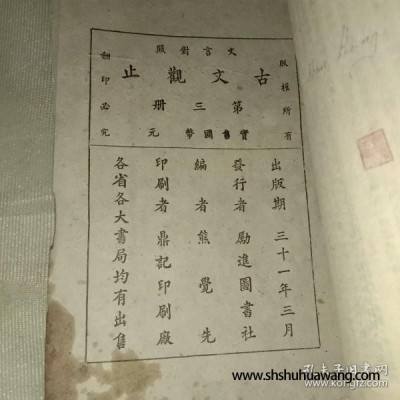 文言對照
版權所有
古文觀止
翻印必究
第三册
實售國幣 元
出版期 三十一年三月
發行者 勵進圖書社
編者 熊覺先
印刷者 鼎記印刷廠
各省各大書局均有出售
www.shshuhuawang.com
孔夫子旧书网